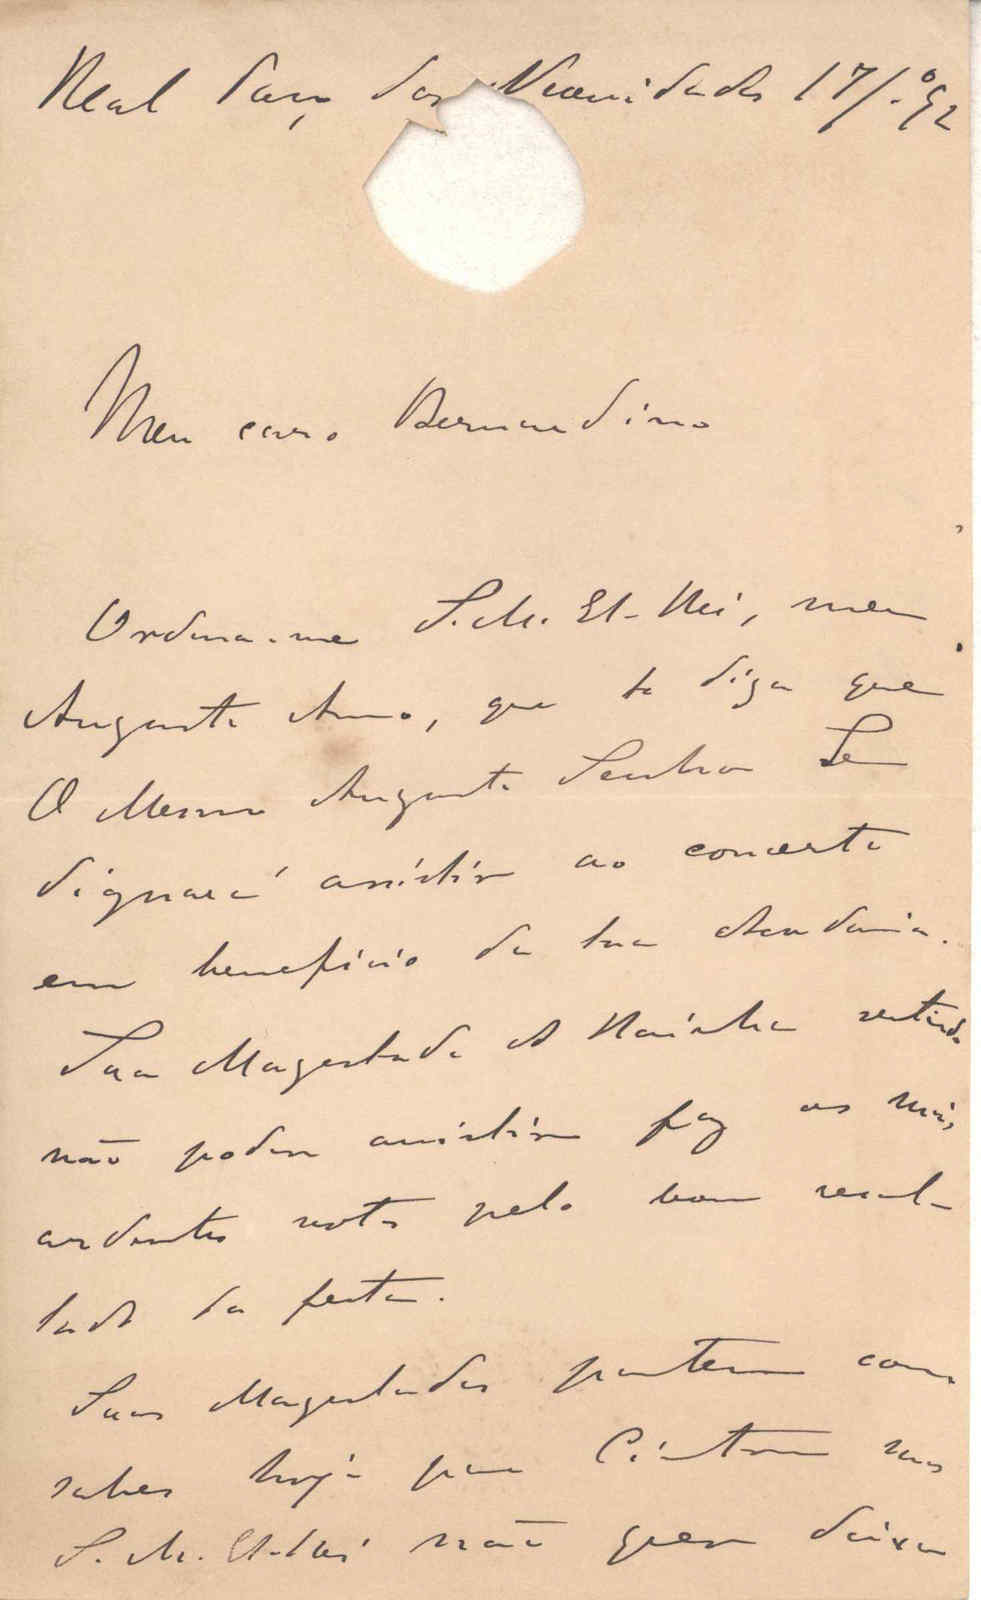 Real Paço das Necessidades 17/
Meu caro Bernardino
Ordena-me S. M. El-Rei, meu
Augusto Amo, que te diga que
O Mesmo Augusto Senhor Se
dignará assistir ao concerto
em beneficio da tua Academia.
Sua Magestade A Rainha sentindo
não poder assistir faz os mais
ardentes votos pelo bom resul-
tado da festa.
Suas Magestades partem como
sabes hoje para Cintra mas
S. M. El-Rei não quer deixar